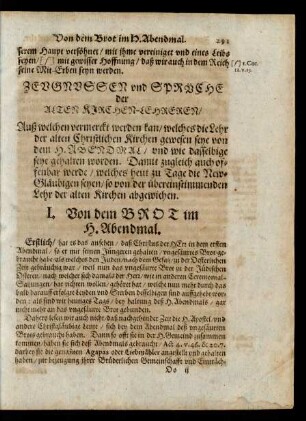 Von dem Brot im H. Abendmal. 291
serem Haupt versöhnet/ mit ihme vereiniget vnd eines Leibs
seyen/ [/] mit gewisser Hoffnung/ daß wir auch in dem Reich
seine Mit-Erben seyn werden.
[/] 1. Cor.
ZEVGNVSSEN vnd SPRVCHE
der
ALTEN KIRCHEN-LEHREREN/
Auß welchen vermerckt werden kan/ welches die Lehr
der alten Christlichen Kirchen gewesen seye von
dem H. ABENDMAL/ vnd wie dasselbige
seye gehalten worden. Damit zugleich auch of-
fenbar werde/ welches heut zu Tage die New-
Gläubigen seyen/ so von der übereinstimmenden
Lehr der alten Kirchen abgewichen.
I. Von dem BROT im
H. Abendmal.
Erstlich/ hat es das ansehen/ daß Christus der HErr in dem ersten
Abendmal/ so Er mit seinen Jüngeren gehalten/ vngesäurtes Brot ge-
braucht habe als welches den Juden/ nach dem Gesatz/ zu der Osterlichen
Zeit gebräuchig war/ weil man das vngesäurte Brot zu der Jüdischen
Osteren/ nach welcher sich damals der Herr/ wie in anderen Ceremonial-
Satzungen/ hat richten wollen/ gehöret hat/ welche nun mehr durch das
bald darauf erfolgte leiden vnd Sterben desselbigen sind auffgehebt wor-
den: als sind wir heutiges Tags/ bey haltung deß H. Abendmals/ gar
nicht mehr an das vngesäurte Brot gebunden.
Daher lesen wir auch nicht/ daß nachgehender Zeit die H. Apostel, vnd
andere Christgläubige derer/ sich bey dem Abendmal deß vngesäurten
Brots gebraucht haben. Dann so offt sie in der H. Gemeind zusammen
kommen/ haben sie sich deß Abendmals gebraucht/ Act. 2. v. 46. & 20. 7.
darbey sie die genanten Agapas oder Liebmähler angestellt vnd gehalten
haben/ zur bezeugung ihrer Brüderlichen Gemeinschafft vnd Einträch-
Oo ij